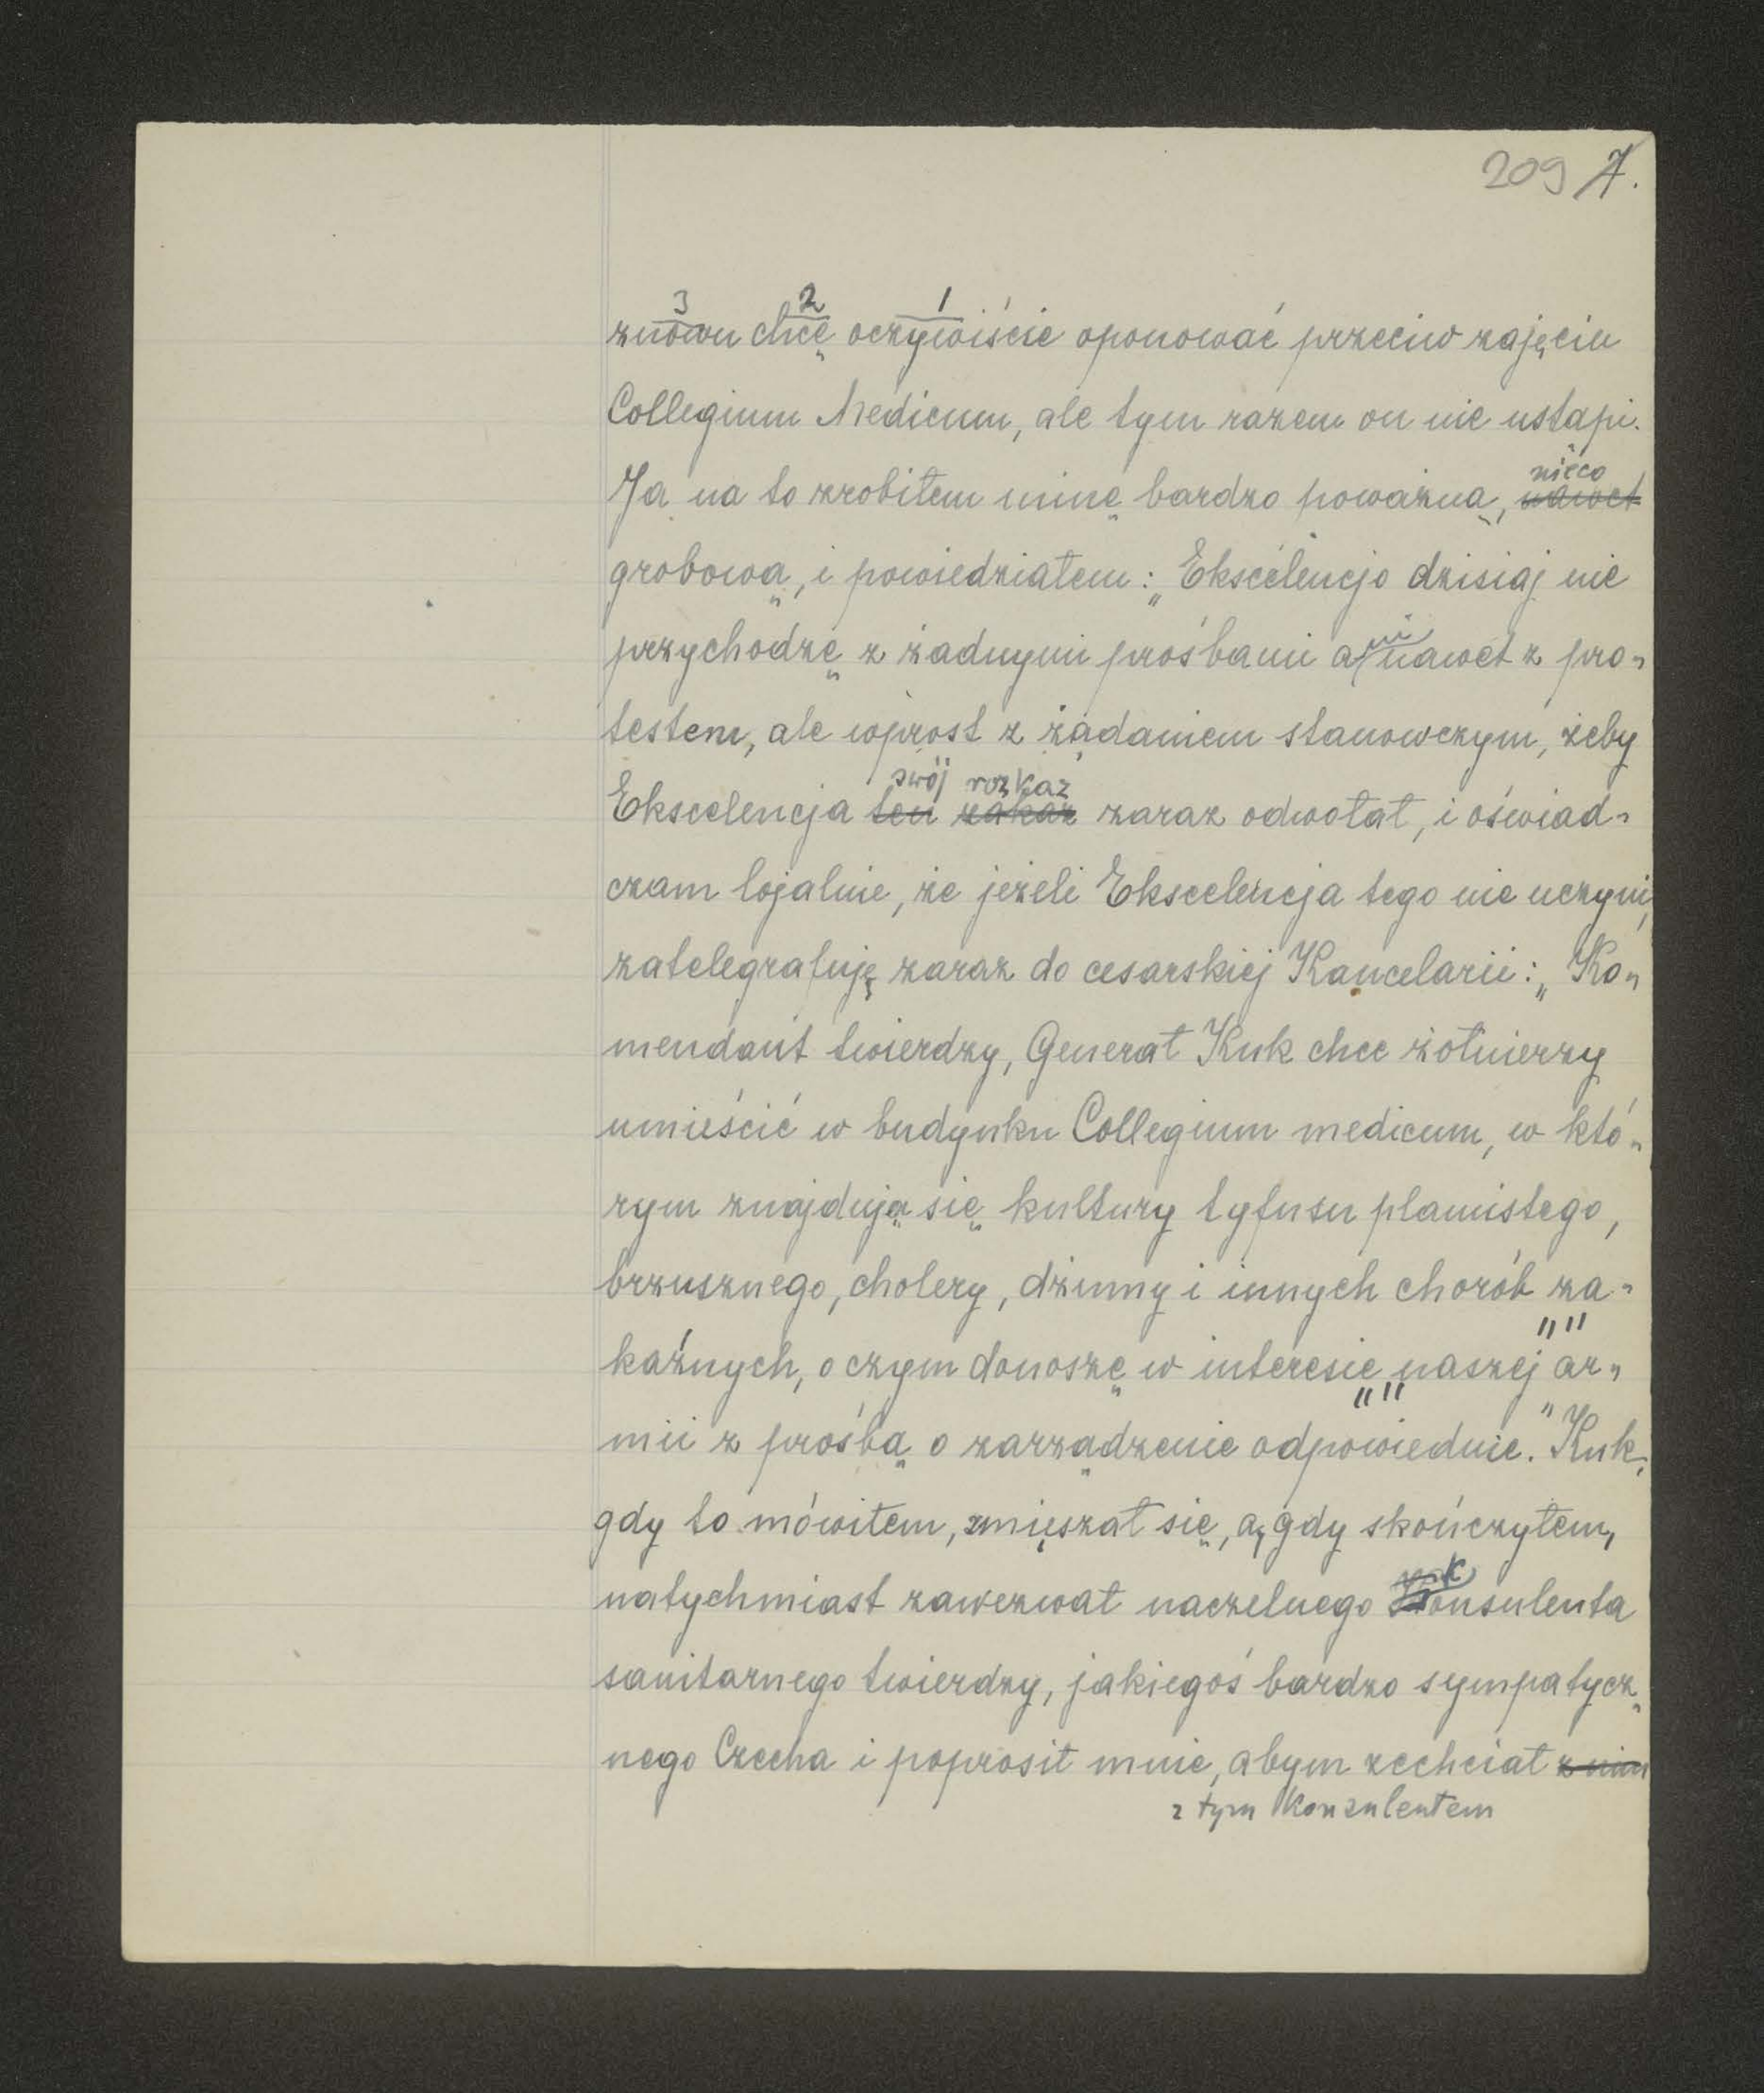 209 7.
3 2 1
znowu chcę oczywiście oponować przeciw zajęciu
Collegium Medicum, ale tym razem on nie ustąpi.
nieco
Ja na to zrobiłem minę bardzo poważną, nawet
grobową, i powiedziałem: „Ekscelencjo dzisiaj nie
ni
przychodzę z żadnymi prośbami a nawet z pro-
testem, ale wprost z żądaniem stanowczym, żeby
swój rozkaz
Ekscelencja ten zakaz zaraz odwołał, i oświad-
czam lojalnie, że jeżeli Ekscelencja tego nie uczyni,
zatelegrafuję zaraz do cesarskiej Kancelarii: „Ko-
mendant twierdzy, Generał Kuk chce żołnierzy
umieścić w budynku Collegium medicum, w któ-
rym znajdują się kultury tyfusu plamistego,
brzusznego, cholery, dżumy i innych chorób za-
kaźnych, o czym donoszę w interesie „naszej" ar-
mii z prośbą o zarządzenie odpowiednie." Kuk,
gdy to mówiłem, zmięszał się, a, gdy skończyłem,
k
natychmiast zawezwał naczelnego Konsulenta
sanitarnego twierdzy, jakiegoś bardzo sympatycz-
nego Czecha i poprosił mnie, abym zechciał z nim
z tym konzulentem